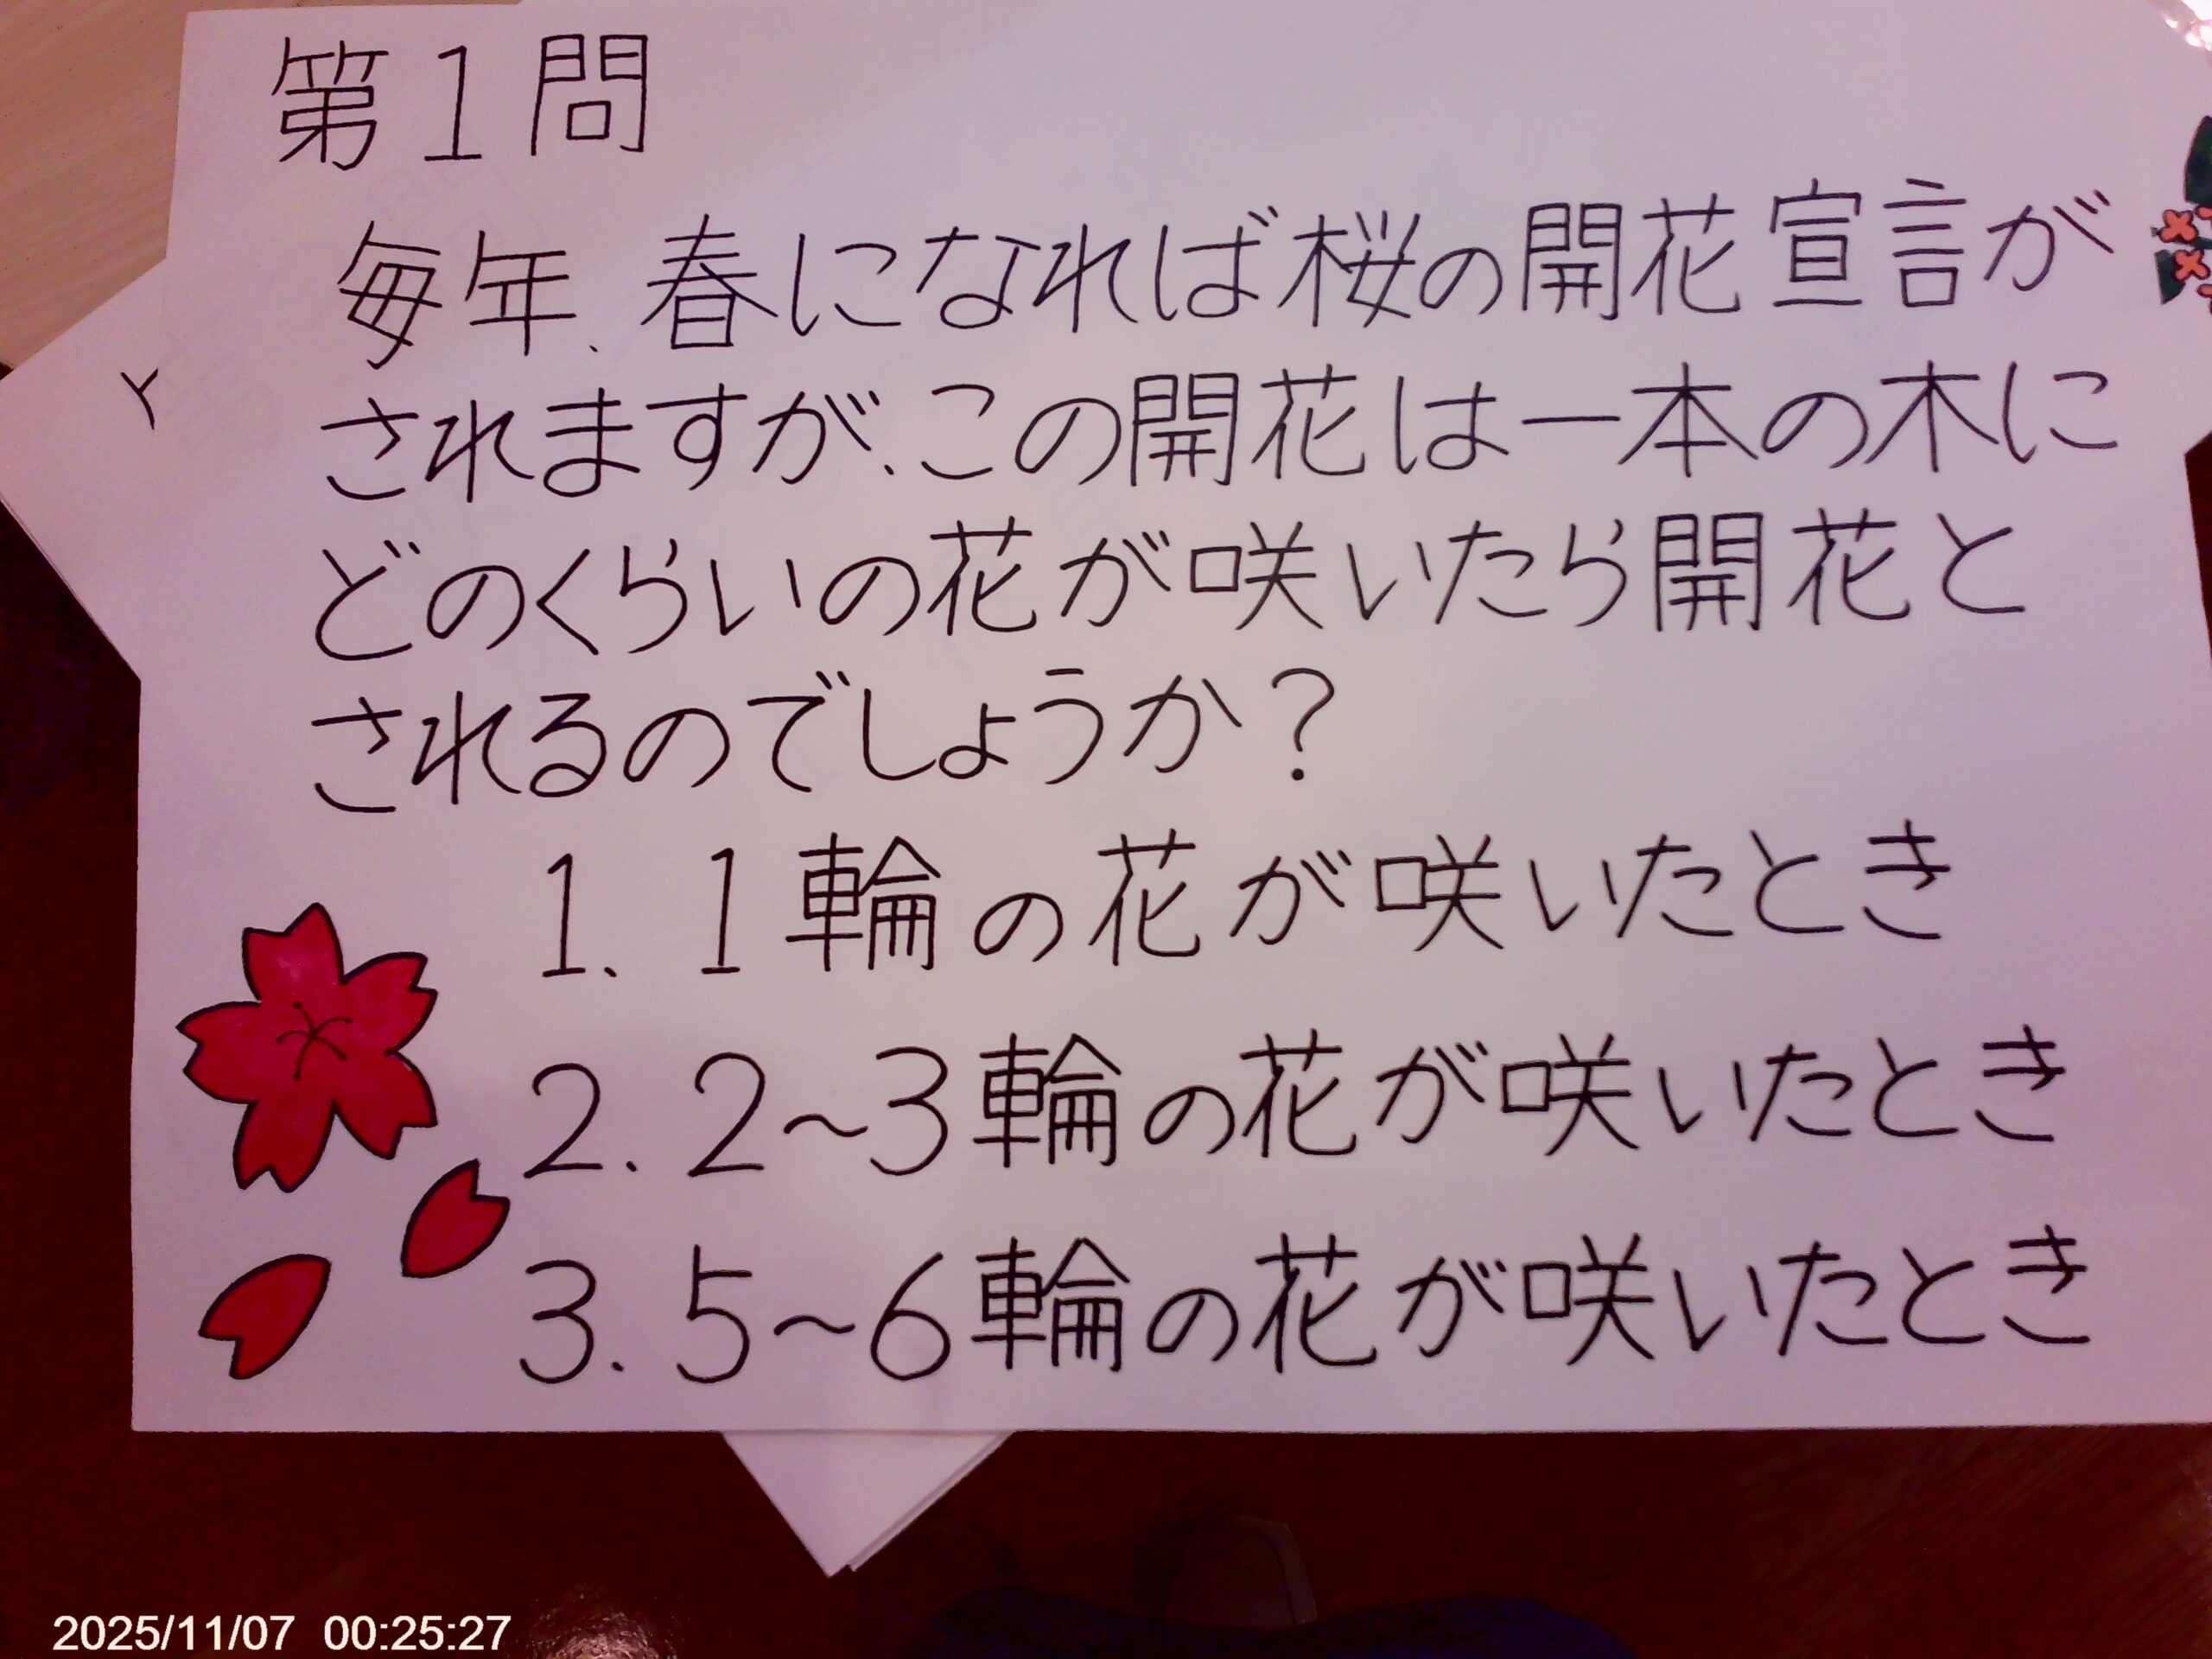 第1問
毎年、春になれば桜の開花宣言が
されますが、この開花は一本の木に
どのくらいの花が咲いたら開花と
されるのでしょうか?
1、1輪の花が咲いたとき
2、2~3輪の花が咲いたとき
3、5~6輪の花が咲いたとき
2025/11/07 00:25:27